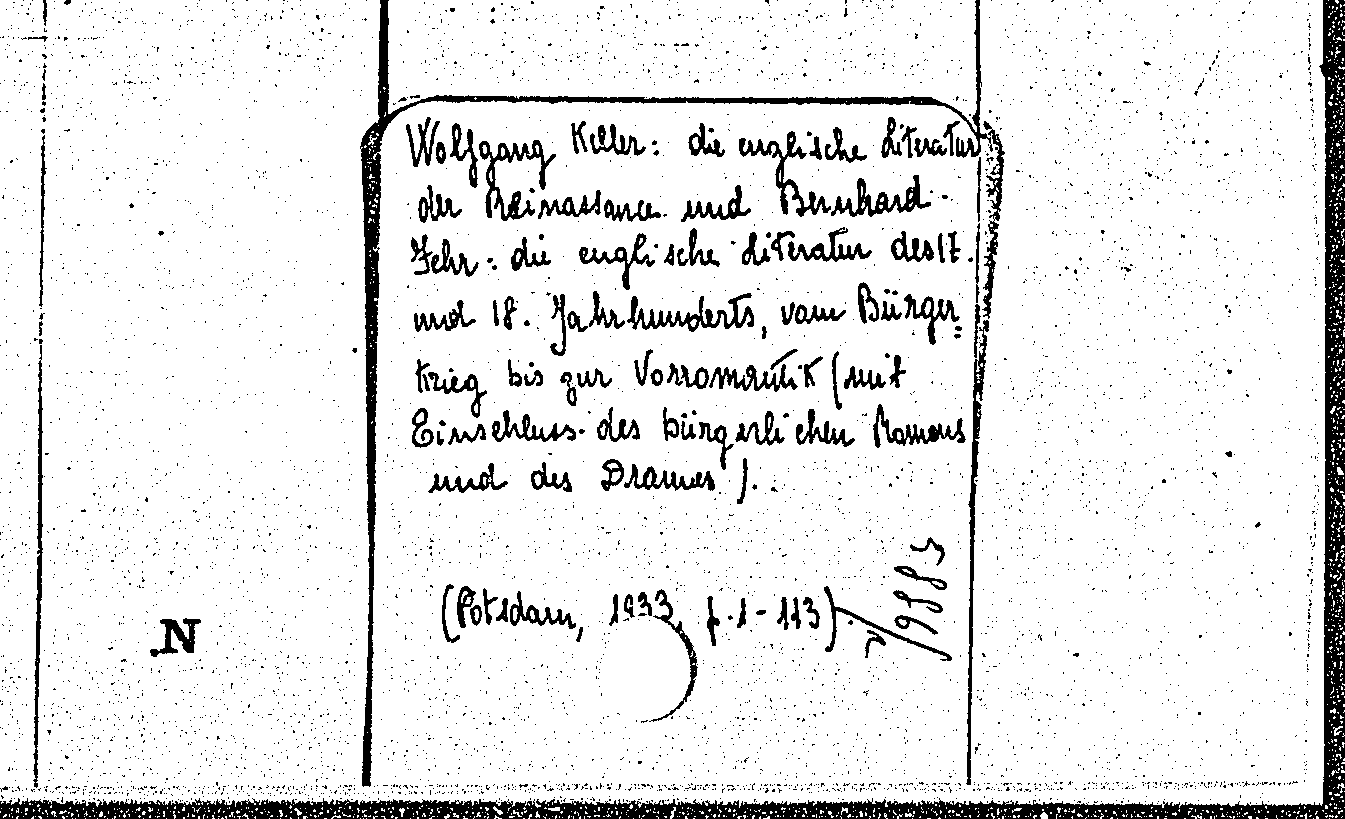 Wolfgang Keller: die englische Literatur
der Reinassance und Bernhard
Fehr: die englische Literatur des 17.
und 18. Jahrhunderts, vom Bürger=
krieg bis zur Vorromantik (mit
Einschluss des bürgerlichen Romans
und des Dramas).
(Potsdam, 1933, p. 1-113)
N.